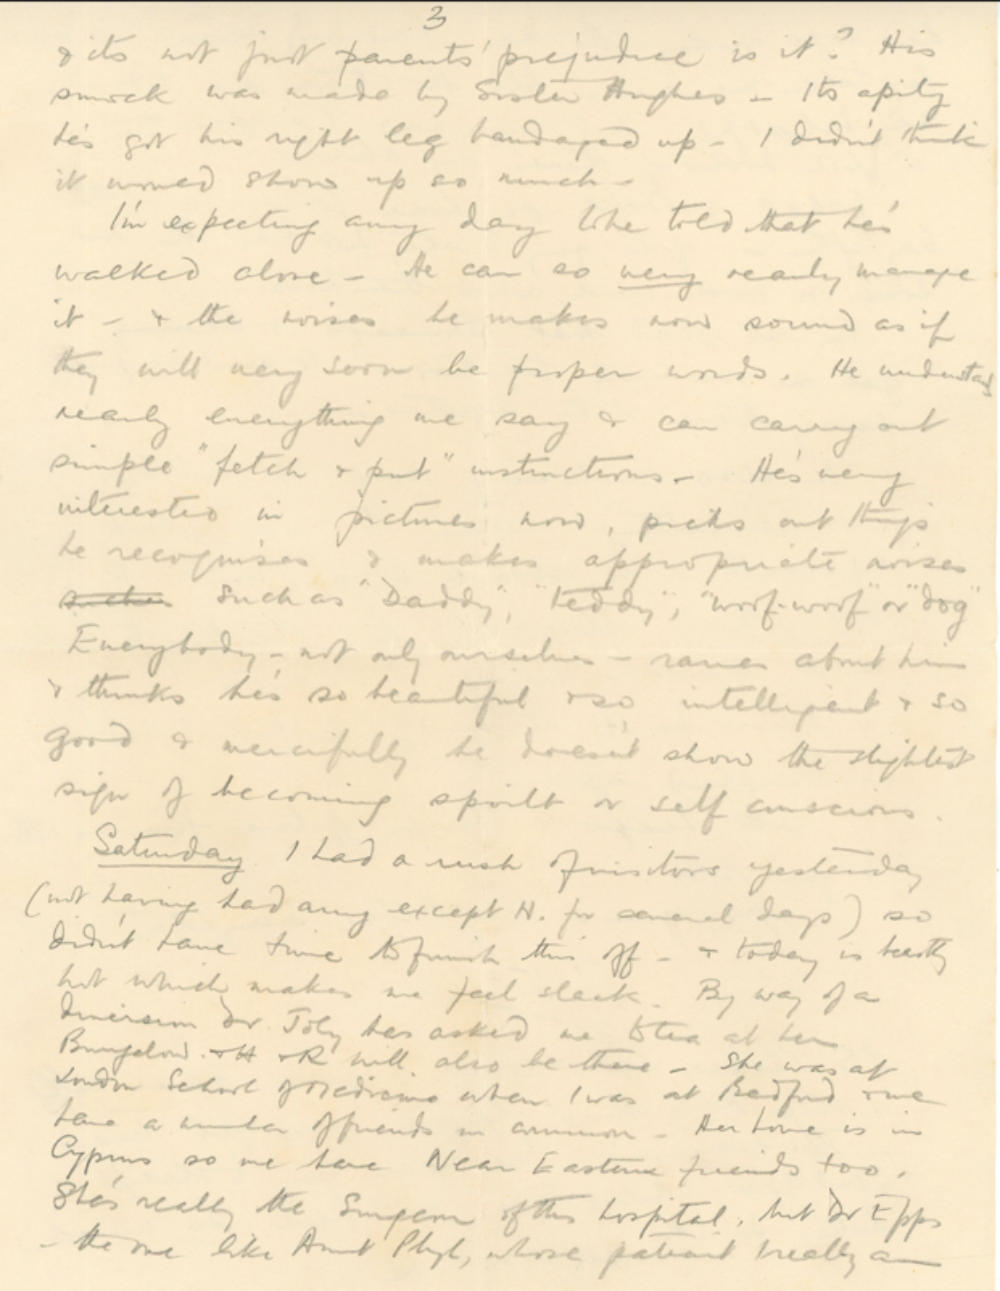 3
& its not just parents' prejudice is it? His
smock was made by Sister Hughes – Its a pity
he's got his right leg bandaged up – I didn't think
it would show up so much –
I'm expecting any day to be told that he's
walked alone – He can so very nearly manage
it – & the noises he makes now sound as if
they will very soon be proper words. He understands
nearly everything we say & can carry out
simple "fetch & put" instructions – He's very
interested in pictures now, picks out things
he recognises & makes appropriate noises
such as "Daddy", "Teddy", "woof-woof" or "dog"
Everybody – not only ourselves – raves about him
& thinks he's so beautiful & so intelligent & so
good & mercifully he doesn't show the slightest
sign of becoming spoilt or self conscious.
Saturday I had a rush of visitors yesterday
(not having had any except H. for several days) so
didn't have time to finish this off – & today is beastly
hot which makes me feel slack. By way of a
diversion Dr. Joly has asked me to tea at her
Bungalow. & H & R will also be there – She was at
London School of Medicine when I was at Bedford & we
have a number of friends in common – Her home is in
Cyprus so we have Near Eastern friends too.
She's really the Surgeon of this hospital, but Dr Epps
– the one like Aunt Phyl, whose patient I really am